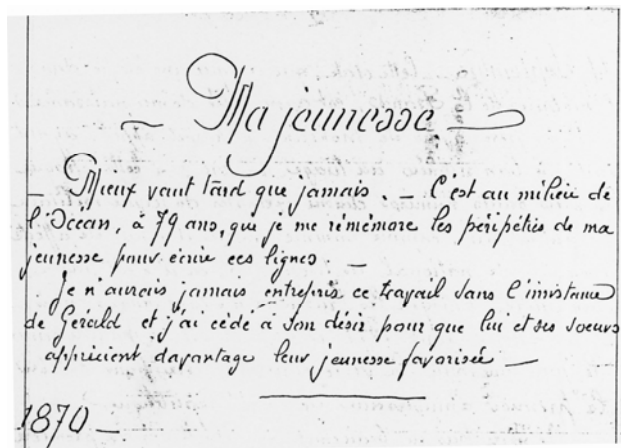 Ma jeunesse.
— Mieux vaut tard que jamais. — C'est au milieu de
l'Océan, à 79 ans, que je me rémémore les péripéties de ma
jeunesse pour écrire ces lignes. —
Je n'aurais jamais entrepris ce travail sans l'insistance
de Gérald et j'ai cédé à son désir pour que lui et ses soeurs
apprécient davantage leur jeunesse favorisée —
1870 —